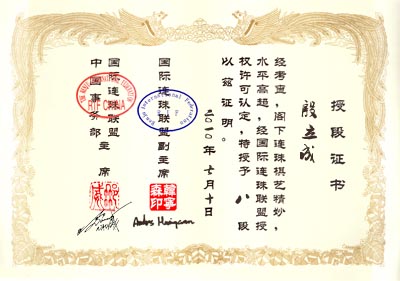 授段证书
殷立成
经考查，阁下连珠棋艺精妙，
水平高超，经国际连珠联盟授
权许可认定，特授予 八 段
以兹证明。
二〇一〇年七月十日
国际连珠联盟副主席
Renju International Federation
国际连珠联盟
中国事务部 主席
RIF CHINA